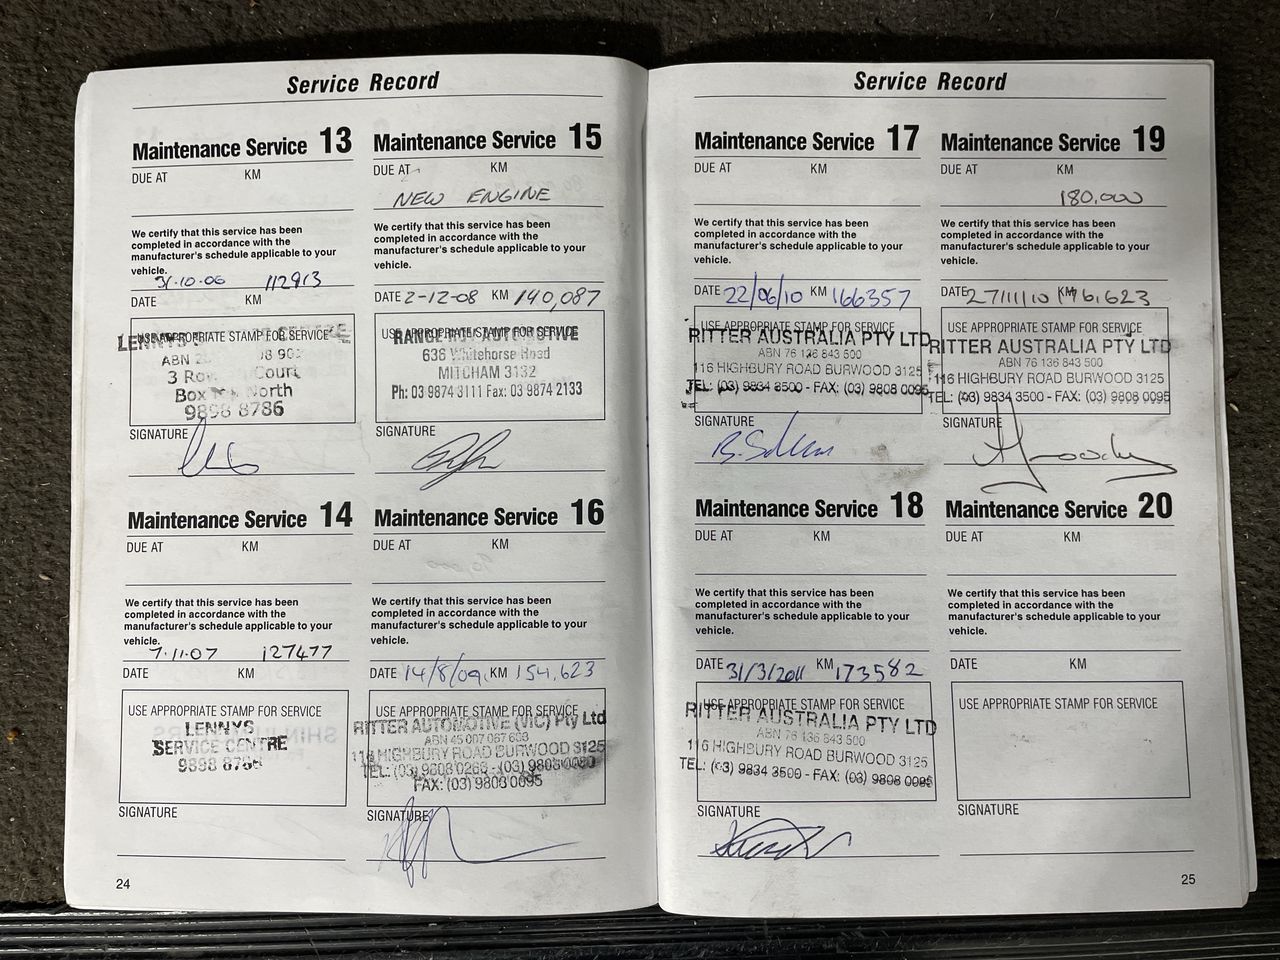 Service Record
Maintenance Service 13
DUE AT KM
We certify that this service has been
completed in accordance with the
manufacturer's schedule applicable to your
vehicle.
31.10.06 112913
DATE KM
USE APPROPRIATE STAMP FOR SERVICE
LENNYS CENTRE
ABN
3 Court
Box North
9898 8786
SIGNATURE
Maintenance Service 14
DUE AT KM
We certify that this service has been
completed in accordance with the
manufacturer's schedule applicable to your
vehicle.
7.11.07 127477
DATE KM
USE APPROPRIATE STAMP FOR SERVICE
LENNYS
SERVICE CENTRE
9898 8786
SIGNATURE
24
Maintenance Service 15
DUE AT KM
NEW ENGINE
We certify that this service has been
completed in accordance with the
manufacturer's schedule applicable to your
vehicle.
DATE 2-12-08 KM 140,087
USE APPROPRIATE STAMP FOR SERVICE
AUTOMOTIVE
636 Whitehorse Road
MITCHAM 3132
Ph: 03 9874 3111 Fax: 03 9874 2133
SIGNATURE
Maintenance Service 16
DUE AT KM
We certify that this service has been
completed in accordance with the
manufacturer's schedule applicable to your
vehicle.
DATE 14/8/09 KM 154,623
USE APPROPRIATE STAMP FOR SERVICE
RITTER AUTOMOTIVE (VIC) Pty Ltd
ABN 45 007 067 608
116 HIGHBURY ROAD BURWOOD 3125
TEL: (03) 9808 0266 - (03) 9808
FAX: (03) 9808 0095
SIGNATURE
Service Record
Maintenance Service 17
DUE AT KM
We certify that this service has been
completed in accordance with the
manufacturer's schedule applicable to your
vehicle.
DATE 22/06/10 KM 166357
USE APPROPRIATE STAMP FOR SERVICE
RITTER AUSTRALIA PTY LTD
ABN 76 136 843 500
116 HIGHBURY ROAD BURWOOD 3125
TEL: (03) 9834 3500 - FAX: (03) 9808 0095
SIGNATURE
Maintenance Service 18
DUE AT KM
We certify that this service has been
completed in accordance with the
manufacturer's schedule applicable to your
vehicle.
DATE 31/3/2011 KM 173582
USE APPROPRIATE STAMP FOR SERVICE
RITTER AUSTRALIA PTY LTD
ABN 76 136 843 500
116 HIGHBURY ROAD BURWOOD 3125
TEL: (03) 9834 3500 - FAX: (03) 9808 0095
SIGNATURE
Maintenance Service 19
DUE AT KM
180,000
We certify that this service has been
completed in accordance with the
manufacturer's schedule applicable to your
vehicle.
DATE 27/11/10 KM 176,623
USE APPROPRIATE STAMP FOR SERVICE
RITTER AUSTRALIA PTY LTD
ABN 76 136 843 500
116 HIGHBURY ROAD BURWOOD 3125
TEL: (03) 9834 3500 - FAX: (03) 9808 0095
SIGNATURE
Maintenance Service 20
DUE AT KM
We certify that this service has been
completed in accordance with the
manufacturer's schedule applicable to your
vehicle.
DATE KM
USE APPROPRIATE STAMP FOR SERVICE
SIGNATURE
25